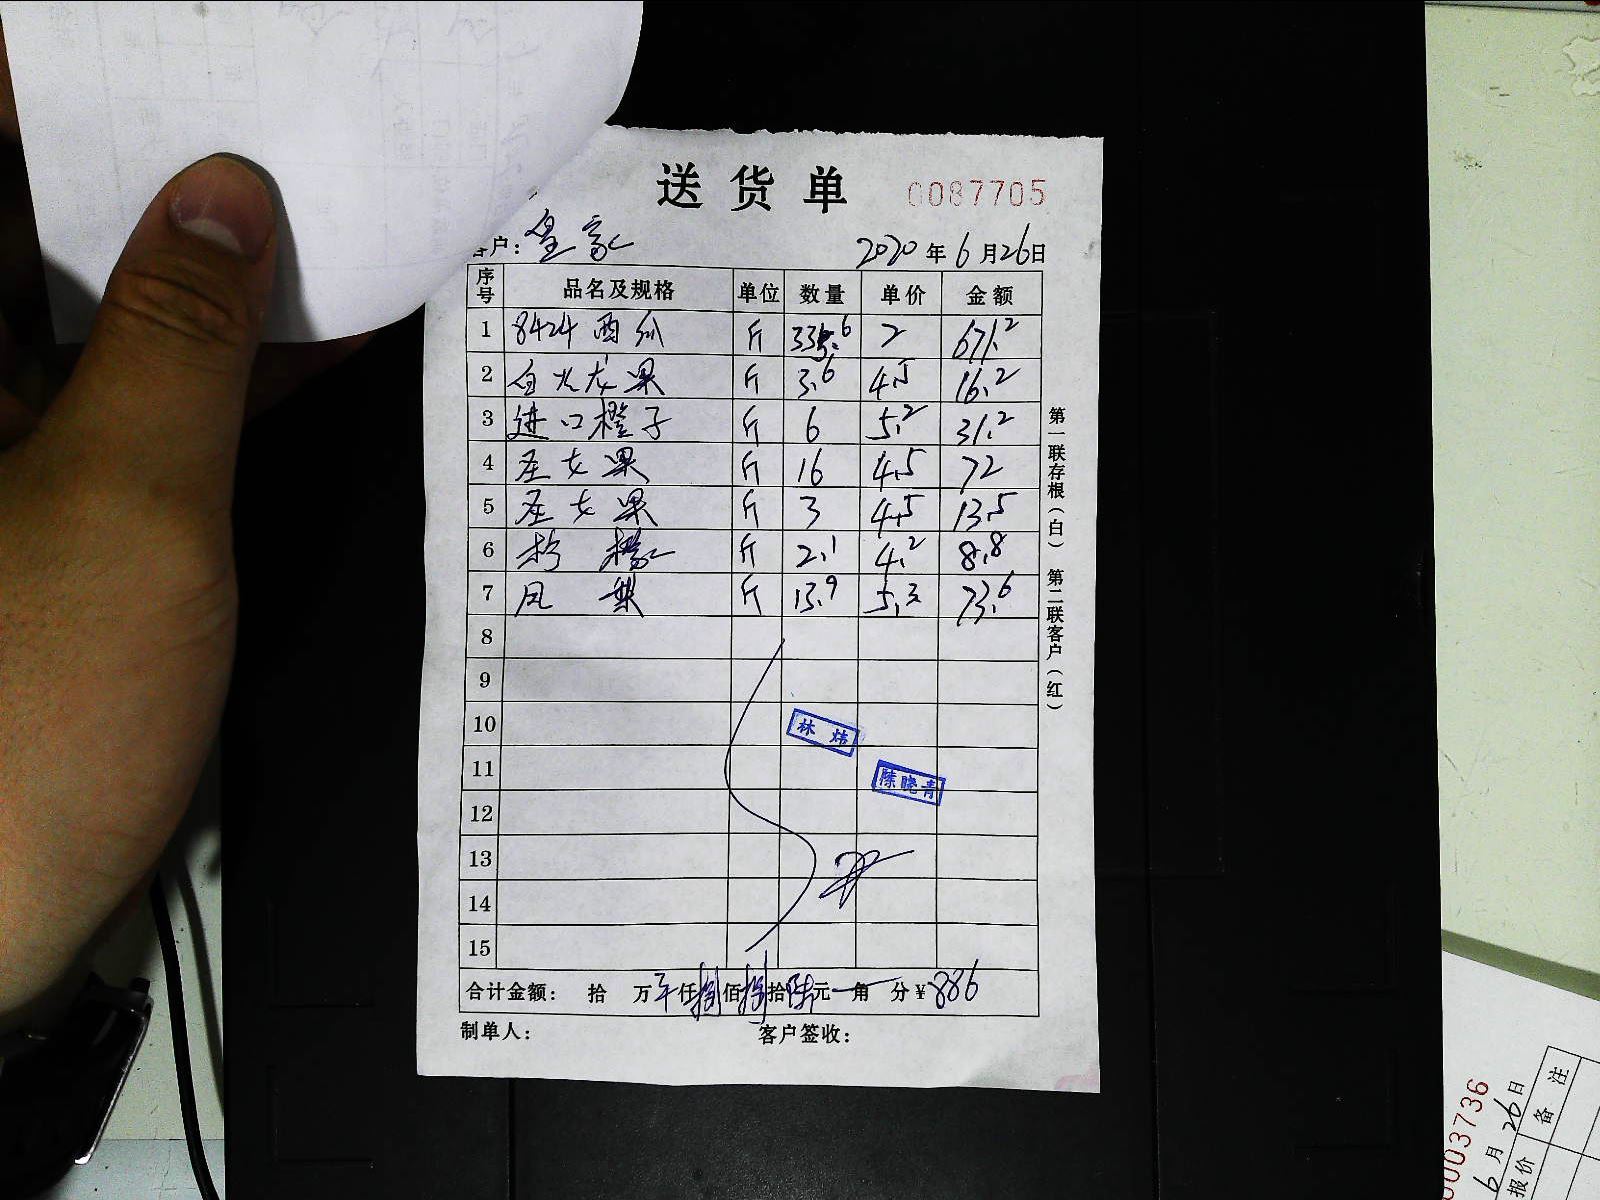 送货单 0087705
客户：皇家 2020年6月26日
序号 品名及规格 单位 数量 单价 金额
1 8424西瓜 斤 335.6 2 671.2
2 白火龙果 斤 3.6 4.5 16.2
3 进口橙子 斤 6 5.2 31.2
4 圣女果 斤 16 4.5 72
5 圣女果 斤 3 4.5 13.5
6 柠檬 斤 2.1 4.2 8.8
7 凤梨 斤 13.9 5.3 73.6
8
9
10 林炜
11 陈晓青
12
13
14
15
合计金额： 拾 万 仟捌佰捌拾陆元 角 分¥886
制单人： 客户签收：
第一联存根（白） 第二联客户（红）
0003736
6月26日
报价 备注